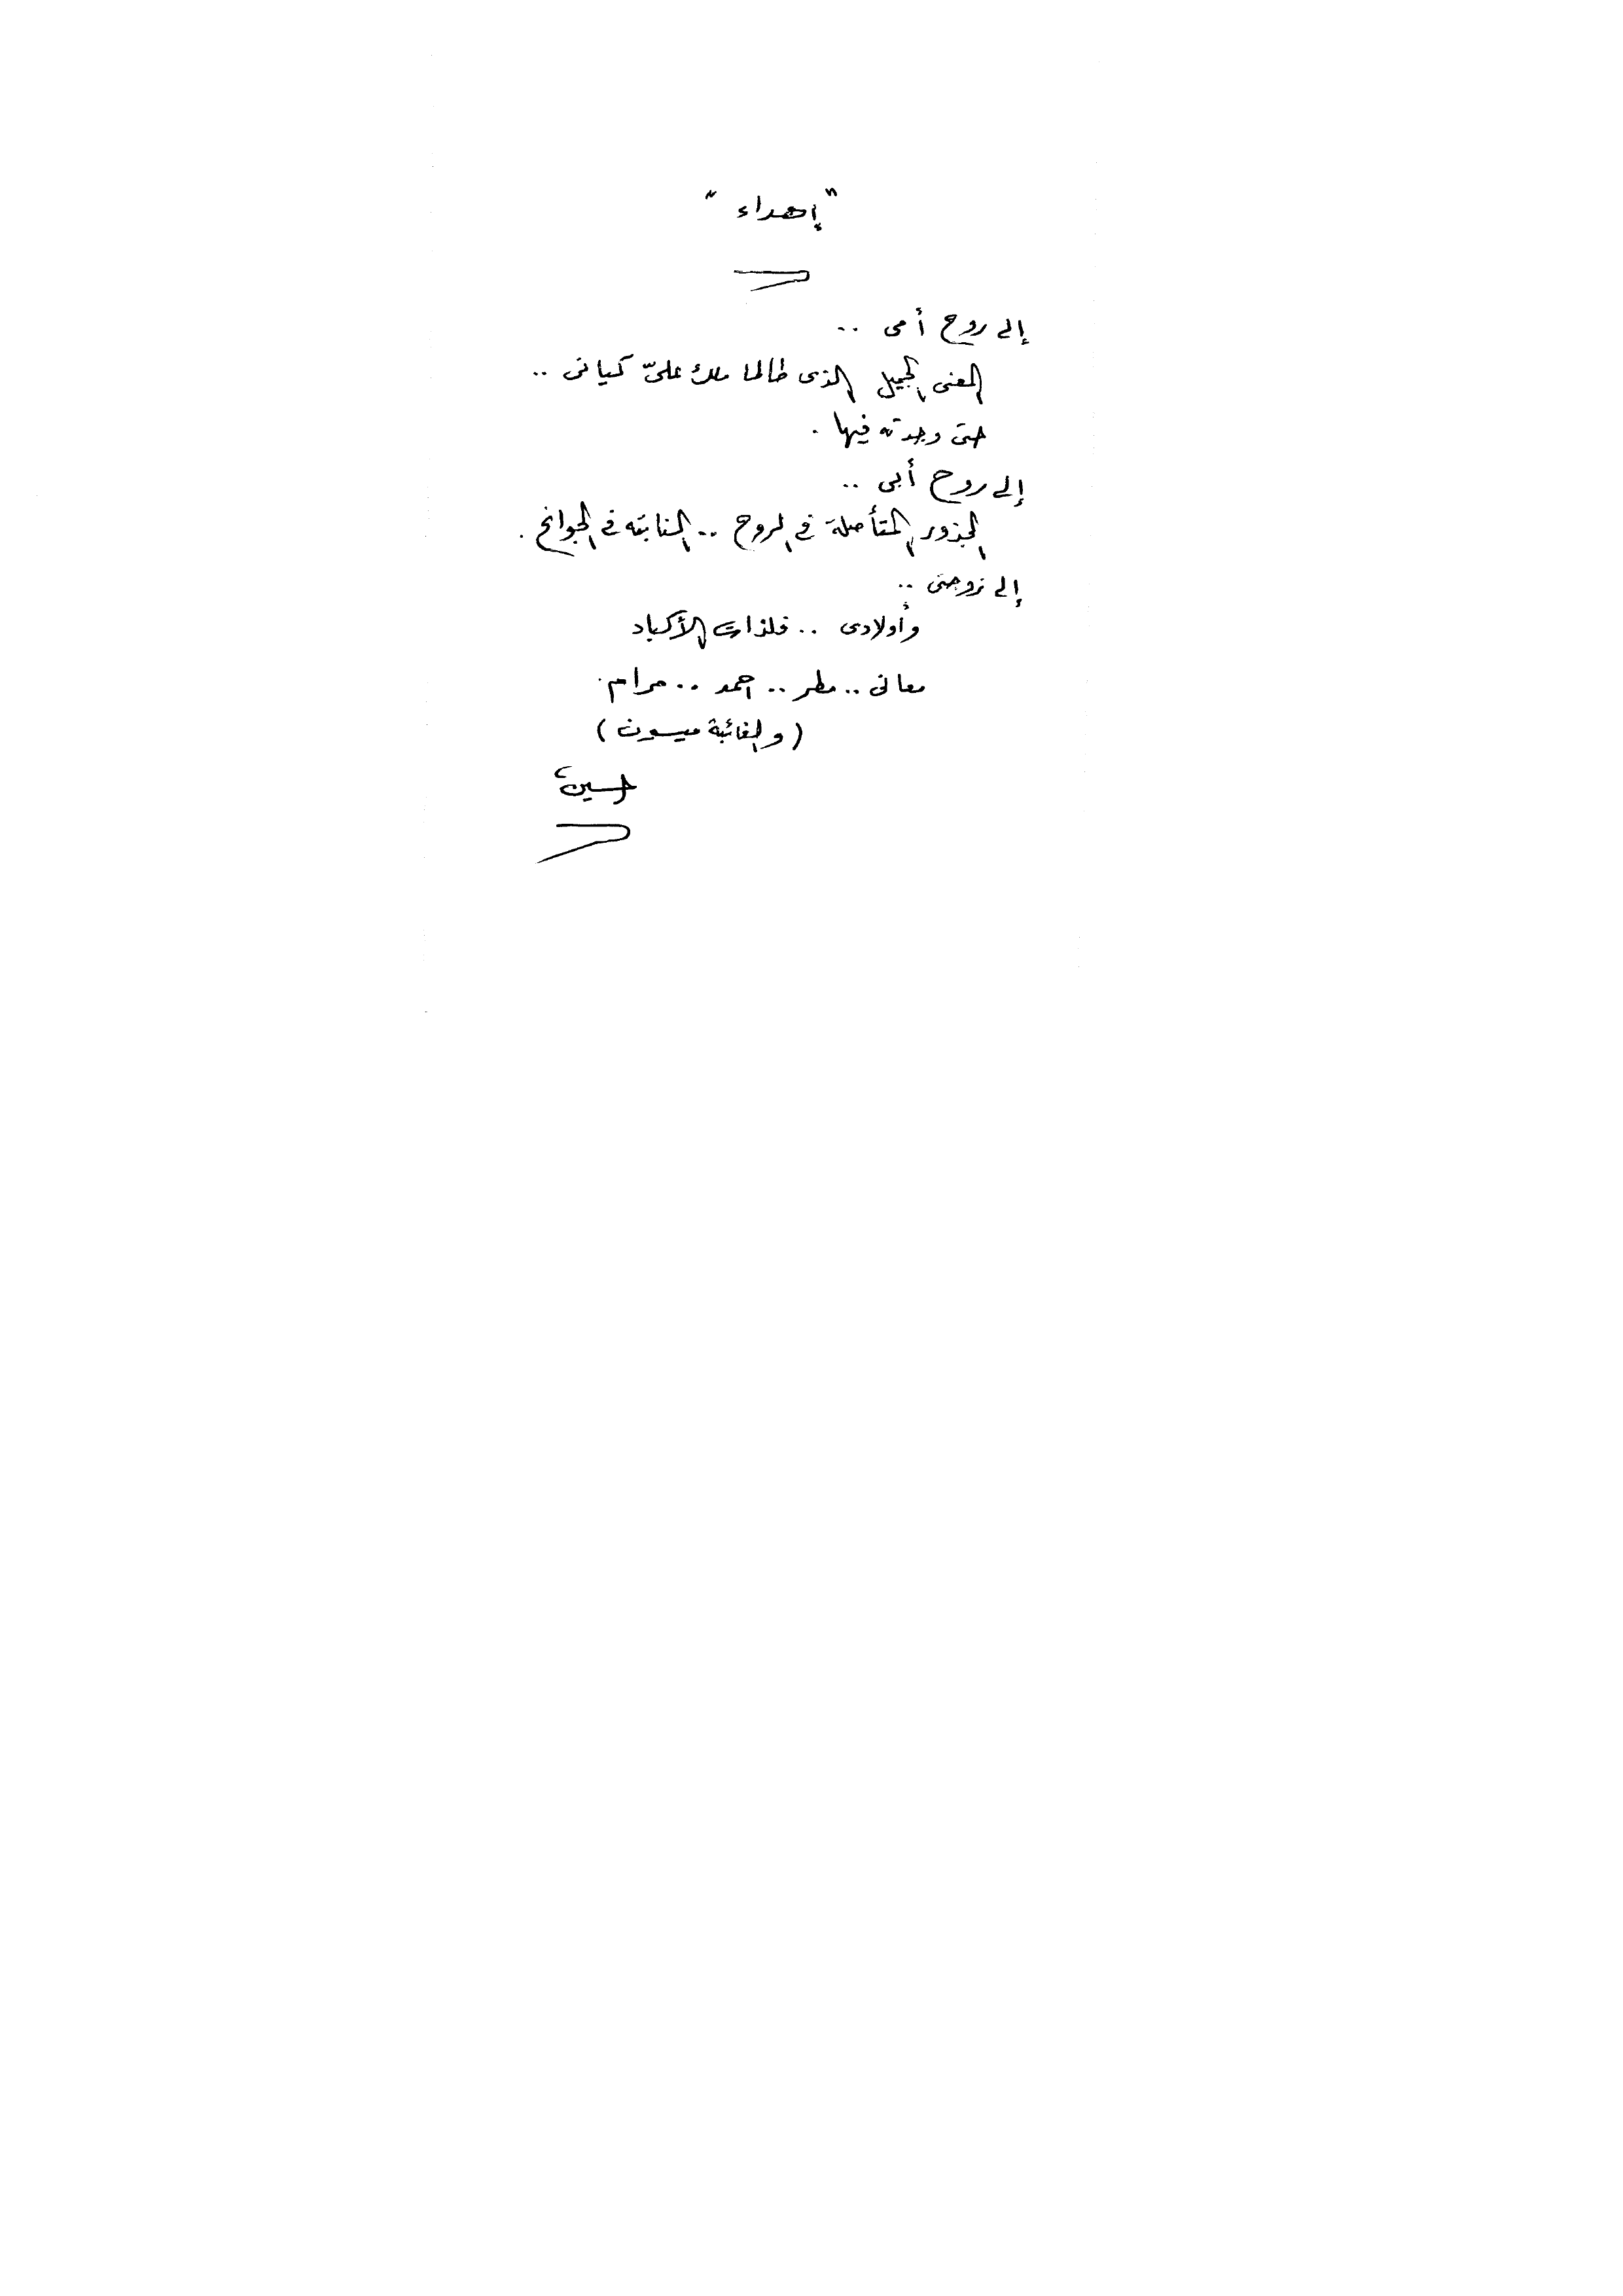 "إهداء"
إلى روح أمى ..
المعنى الجميل الذى طالما ملك علىّ كيانى ..
حتى وجدته فيها .
إلى روح أبى ..
الجذور المتأصلة فى الروح .. النابته فى الجوانح .
إلى زوجتى ..
وأولادى .. فلذات الأكباد
معانى .. مطر .. احمد .. مرام .
( والغائبة ميسون )
حسين